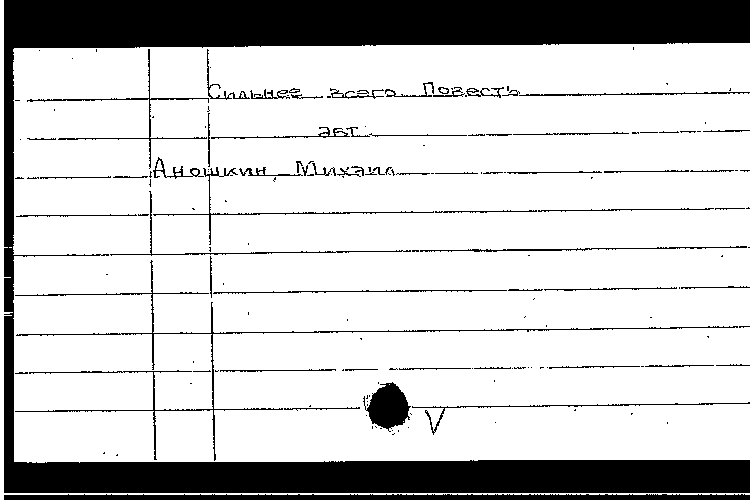 Сильнее всего. Повесть
авт.
Аношкин, Михаил
V